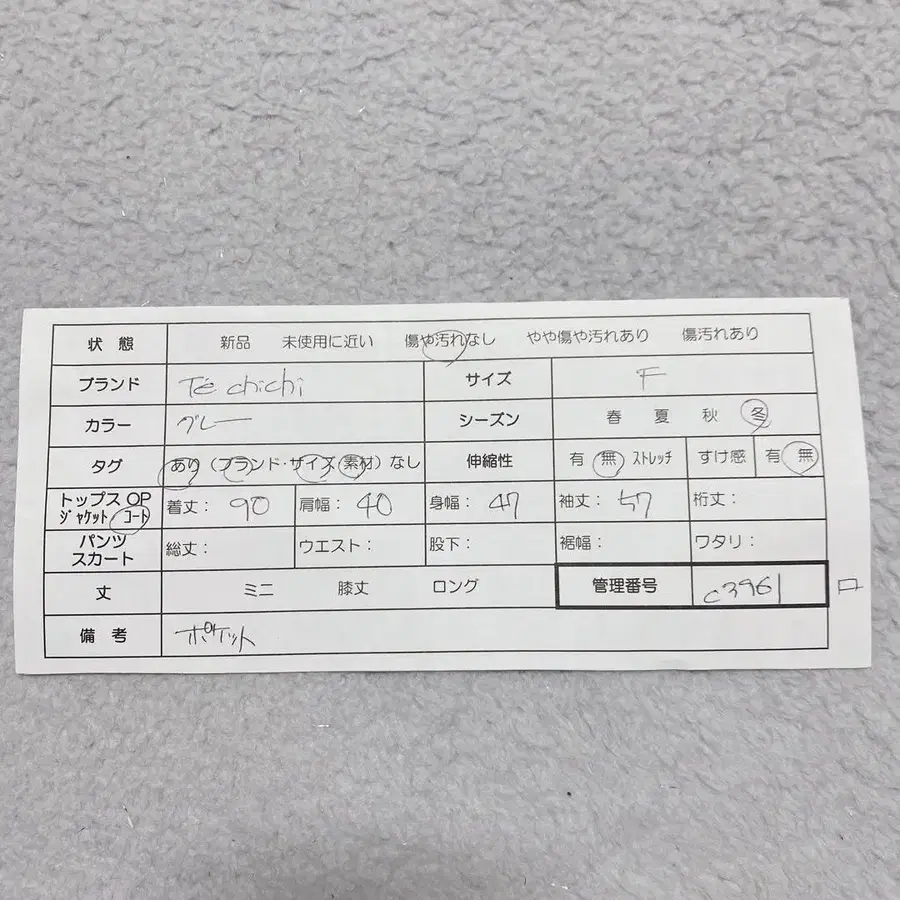 状態 新品 未使用に近い 傷や汚れなし やや傷や汚れあり 傷汚れあり
ブランド Te chichi サイズ F
カラー グレー シーズン 春 夏 秋 冬
タグ あり（ブランド・サイズ・素材）なし 伸縮性 有 無 ストレッチ すけ感 有 無
トップス OP
ジャケット コート 着丈： 90 肩幅： 40 身幅： 47 袖丈： 57 裄丈：
パンツ
スカート 総丈： ウエスト： 股下： 裾幅： ワタリ：
丈 ミニ 膝丈 ロング 管理番号 c3961 ロ
備考 ポケット